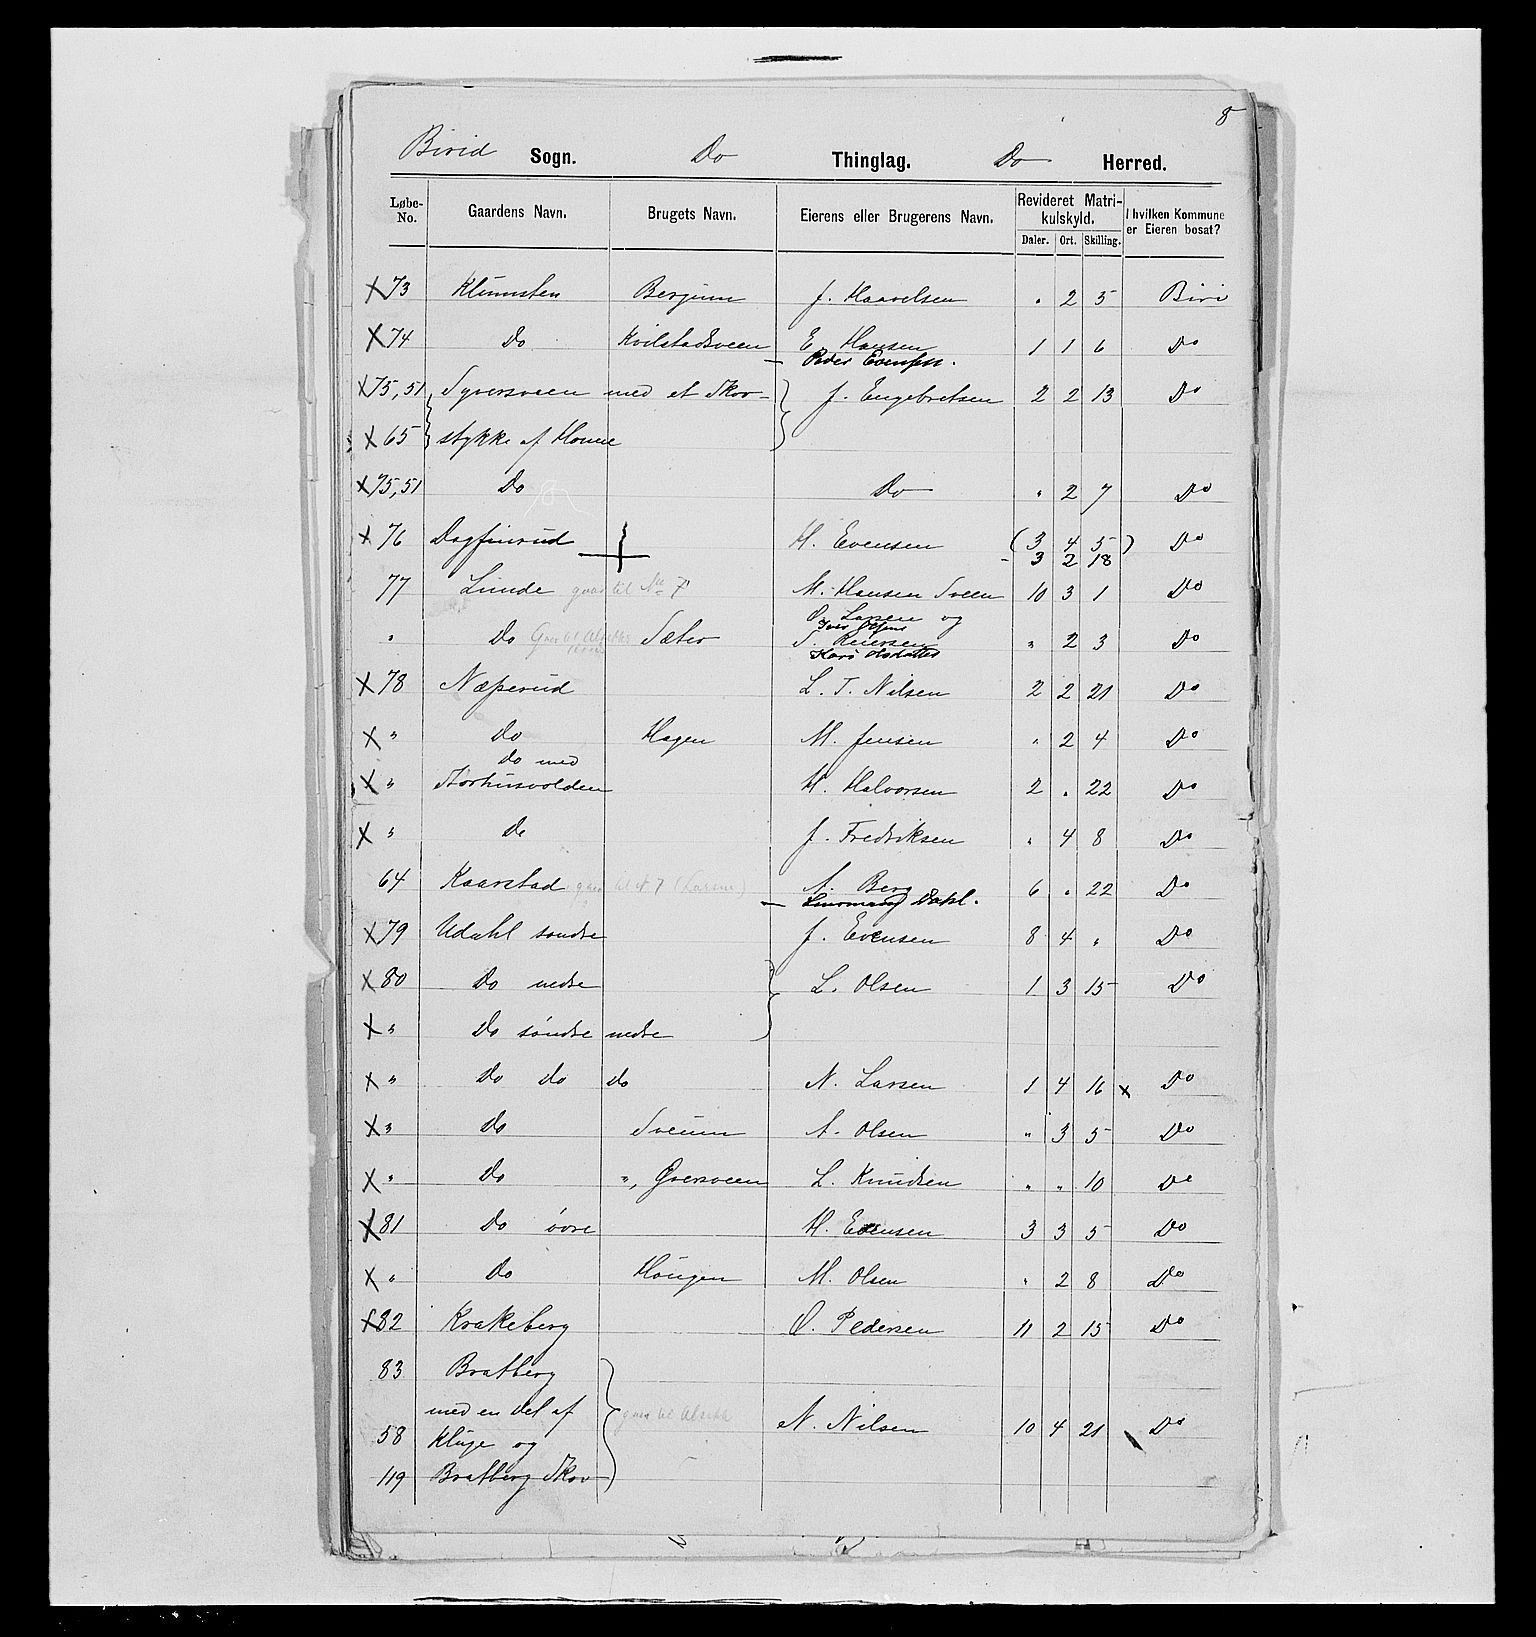 8
Birid Sogn. Do Thinglag. Do Herred.
Løbe-No. Gaardens Navn. Brugets Navn. Eierens eller Brugerens Navn. Revideret Matrikulskyld. I hvilken Kommune er Eieren bosat?
Daler. Ort. Skilling.
X 73 Klumsten Berjum J. Haavelsen " 2 5 Biri
X 74 Do Kvilstadsveen E. Hansen 1 1 6 Do
Peder Evensen.
X 75,51 Syversveen med et Skov- J. Engebretsen 2 2 13 Do
X 65 stykke af Honne
X 75,51 Do Do " 2 7 Do
X 76 Dagfinrud H. Evensen (3 4 5) Do
3 2 18
77 Lunde til No 7 M. Hansen Sveen 10 3 1 Do
O. Larsen og
" Do Sæter S. Reiersen " 2 3 Do
Kari Olsdatter
X 78 Næperud L. T. Nilsen 2 2 21 Do
X " Do Hagen M. Jensen " 2 4 Do
Do med
X " Størhusvolden H. Halvorsen 2 " 22 Do
X " Do J. Fredriksen " 4 8 Do
64 Kaarstad til No 7 (Larsen) A. Berg 6 " 22 Do
Dahl.
X 79 Udahl søndre J. Evensen 8 4 " Do
X 80 Do nedre L. Olsen 1 3 15 Do
X " Do søndre nedre
X " Do do do N. Larsen 1 4 16 x Do
X " Do Sveum A. Olsen " 3 5 Do
X " Do ", Øversveen L. Knudsen " " 10 Do
X 81 Do øvre H. Evensen 3 3 5 Do
X " Do Haugen M. Olsen " 2 8 Do
X 82 Krakeberg O. Pedersen 11 2 15 Do
83 Bratberg
med en del af
58 Kluge og N. Nilsen 10 4 21 Do
119 Bratberg Skov